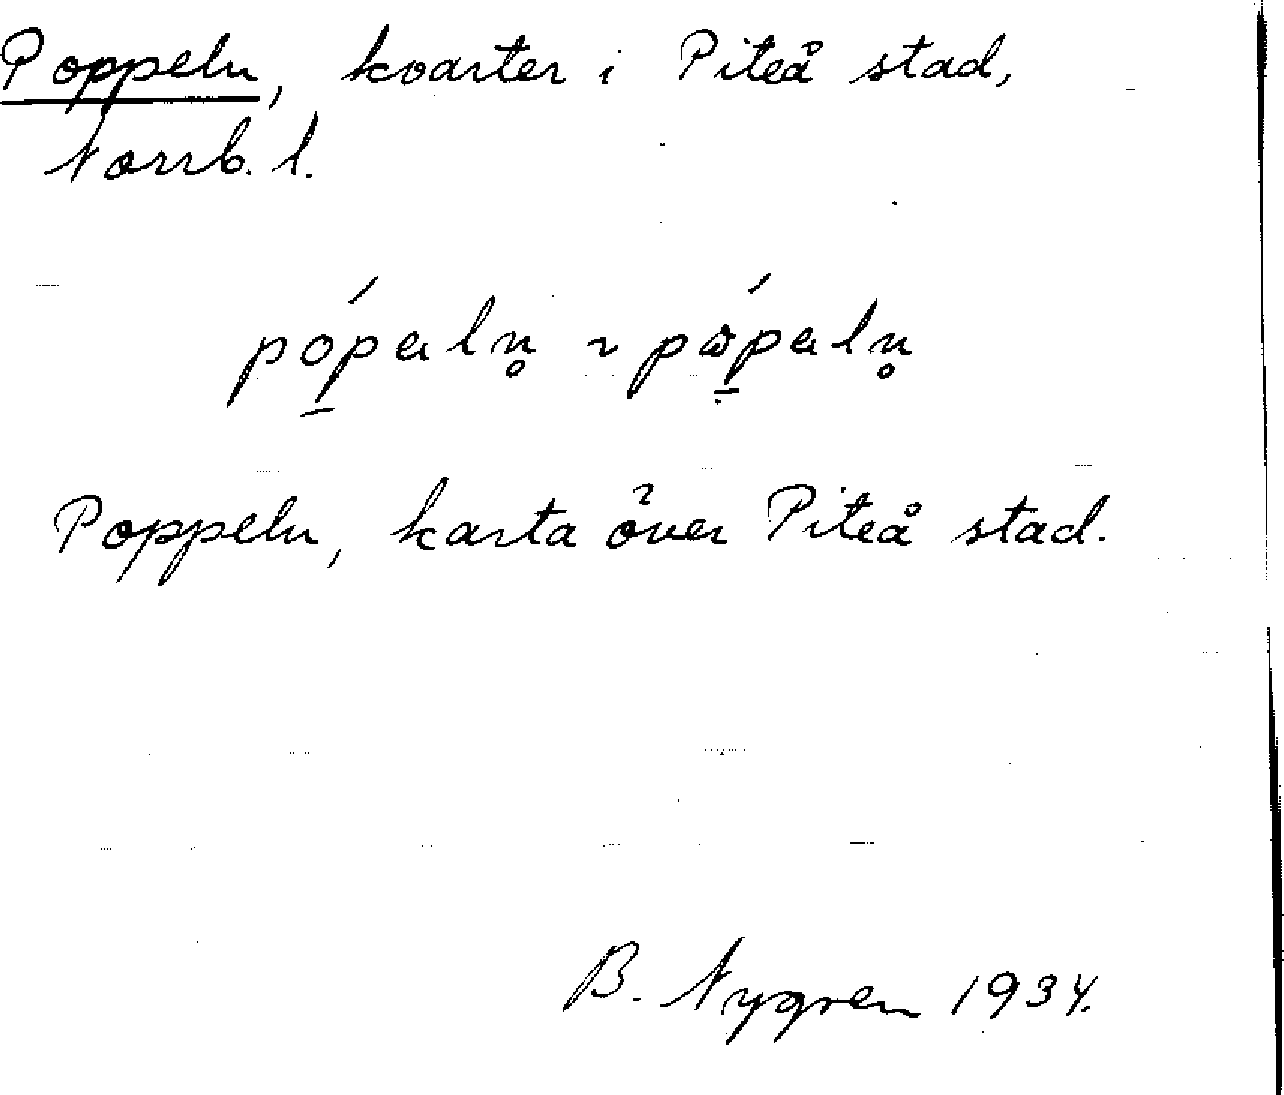 Poppeln, kvarter i Piteå stad,
Norrb. l.
Poppeln, karta över Piteå stad.
B. Nygren 1934.